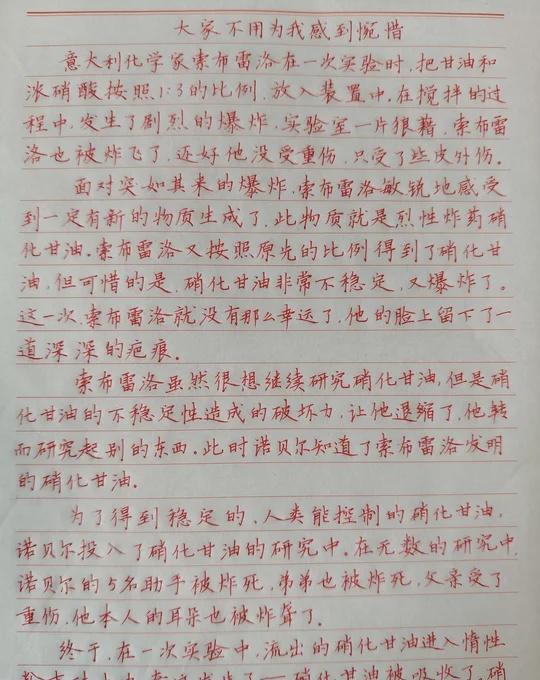 大家不用为我感到惋惜
意大利化学家索布雷洛在一次实验时,把甘油和
浓硝酸按照1:3的比例,放入装置中。在搅拌的过
程中,发生了剧烈的爆炸,实验室一片狼藉,索布雷
洛也被炸飞了,还好他没受重伤,只受了些皮外伤。
面对突如其来的爆炸,索布雷洛敏锐地感受
到一定有新的物质生成了,此物质就是烈性炸药硝
化甘油。索布雷洛又按照原先的比例得到了硝化甘
油,但可惜的是,硝化甘油非常不稳定,又爆炸了。
这一次,索布雷洛就没有那么幸运了,他的脸上留下了一
道深深的疤痕。
索布雷洛虽然很想继续研究硝化甘油,但是硝
化甘油的不稳定性造成的破坏力,让他退缩了,他转
而研究起别的东西。此时诺贝尔知道了索布雷洛发明
的硝化甘油。
为了得到稳定的,人类能控制的硝化甘油,
诺贝尔投入了硝化甘油的研究中。在无数的研究中,
诺贝尔的5名助手被炸死,弟弟也被炸死,父亲受了
重伤,他本人的耳朵也被炸聋了。
终于,在一次实验中,流出的硝化甘油进入惰性
硝化甘油被吸收了,硝